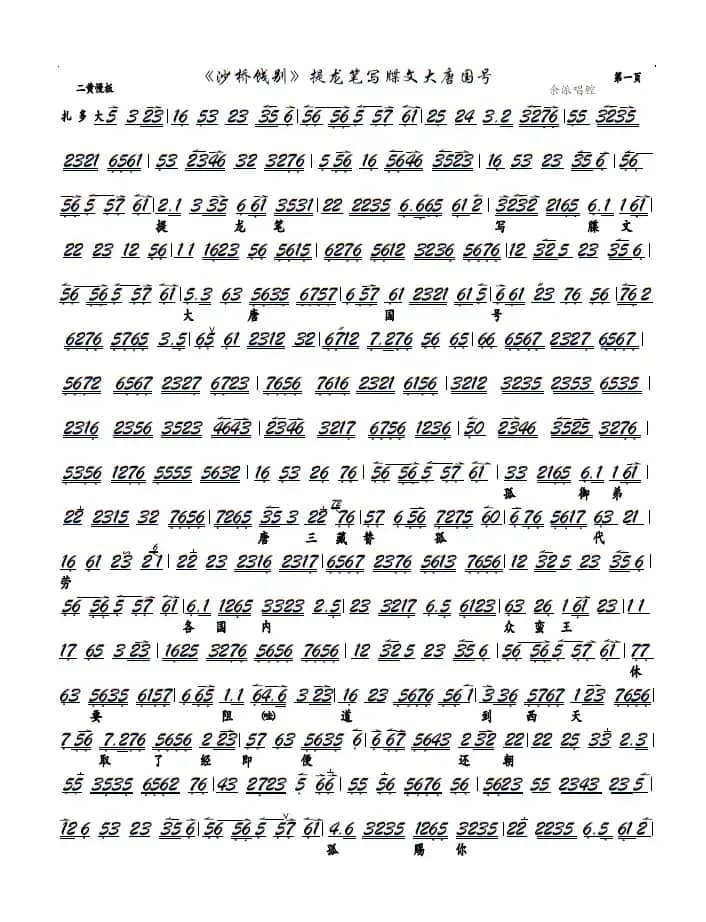 《沙桥饯别》提龙笔写牒文大唐国号
二黄慢板 第一页
余派唱腔
扎多大5 3 23|16 53 23 35 6|56 56 5 57 61|25 24 3.2 3276|55 3235
2321 6561|53 2346 32 3276|5 56 16 5646 3523|16 53 23 35 6|56
56 5 57 61|2.1 3 35 6 61 3531|22 2235 6.665 61 2|3232 2165 6.1 1 61|
提 龙 笔 写 牒 文
22 23 12 56|11 1623 56 5615|6276 5612 3236 5676|12 32 5 23 35 6|
56 56 5 57 61|5.3 63 5635 6757|6 57 61 2321 61 5|6 61 23 76 56|76 2
大 唐 国 号
6276 5765 3.5|65 61 2312 32|6712 7.276 56 65|66 6567 2327 6567|
5672 6567 2327 6723|7656 7616 2321 6156|3212 3235 2353 6535|
2316 2356 3523 4643|2346 3217 6756 1236|50 2346 3525 3276|
5356 1276 5555 5632|16 53 26 76|56 56 5 57 61|33 2165 6.1 1 61|
孤 御 弟
22 2315 32 7656|7265 35 3 22 76|57 6 56 7275 60|6 76 5617 63 21|
唐 三 藏 替 孤 代
16 61 23 21|22 23 2316 2317|6567 2376 5613 7656|12 32 5 23 35 6|
劳
56 56 5 57 61|6.1 1265 3323 2.5|23 3217 6.5 6123|63 26 1 61 23|11
各 国 内 众 蛮 王
17 65 3 23|1625 3276 5656 7656|12 32 5 23 35 6|56 56 5 57 61|77
休
63 5635 6157|6 65 1.1 64.6 3 23|16 23 5676 56 1|3 36 5767 1 23 7656|
要 阻 道 到 西 天
7 56 7.276 5656 2 23|57 63 5635 6|6 67 5643 2 32 22|22 25 33 2.3|
取 了 经 即 便 还 朝
55 3535 6562 76|43 2723 5 66|55 56 5676 56|5623 55 2343 23 5|
12 6 53 23 35 6|56 56 5 57 61|4.6 3235 1265 3235|22 2235 6.5 61 2|
孤 赐 你